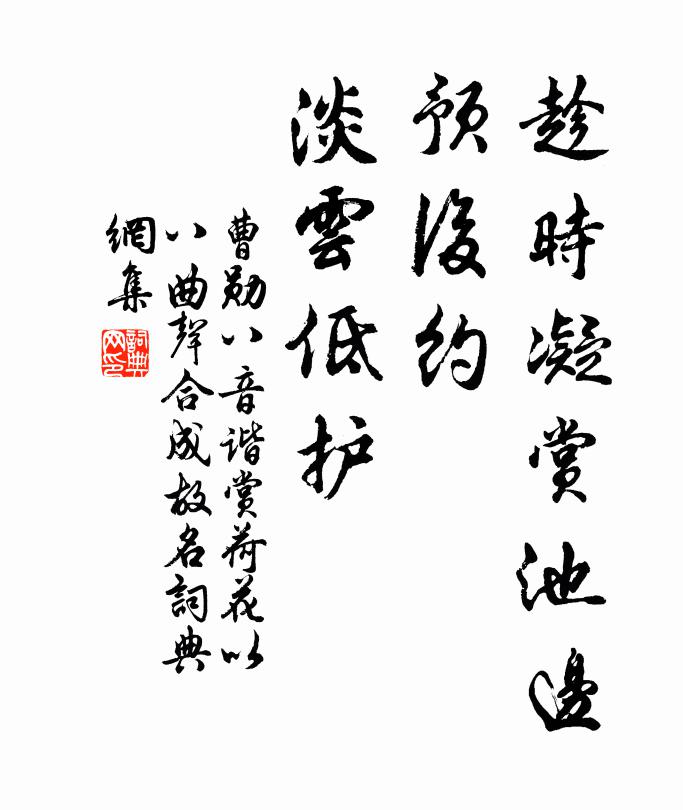 趁時凝賞池邊
預後約
淡雲低护
曹勛八音谐賞荷花以
八曲聲合成故名詞典
網集
詞典
网印